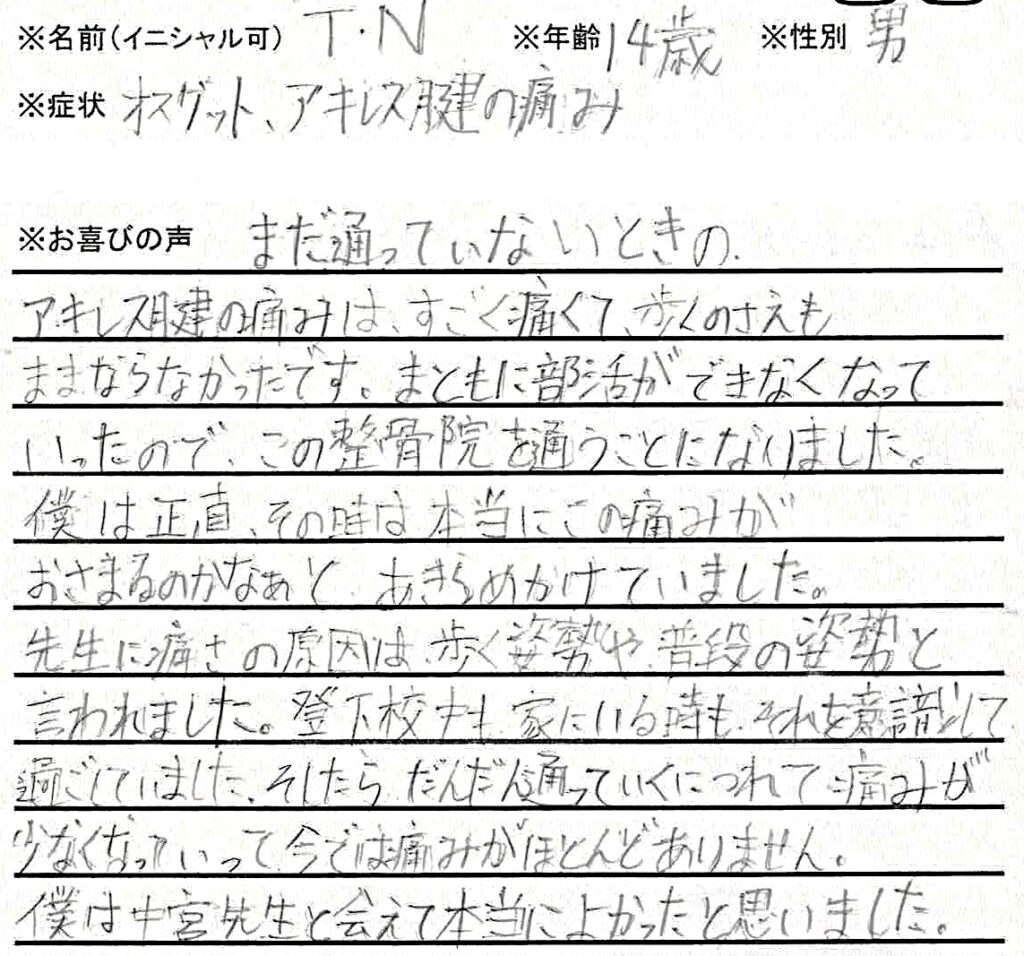 ※名前(イニシャル可) T・N ※年齢 14歳 ※性別 男
※症状 オスグット、アキレス腱の痛み
※お喜びの声 まだ通っていないときの
アキレス腱の痛みは、すごく痛くて、歩くのさえも
ままならなかったです。まともに部活ができなくなって
いったので、この整骨院を通うことになりました。
僕は正直、その時は本当にこの痛みが
おさまるのかなぁと、あきらめかけていました。
先生に痛さの原因は、歩く姿勢や、普段の姿勢と
言われました。登下校中も、家にいる時も、それを意識して
過ごしていました、そしたら、だんだん通っていくにつれて、痛みが
少なくなっていって今では痛みがほとんどありません。
僕は中宮先生と会えて本当によかったと思いました。